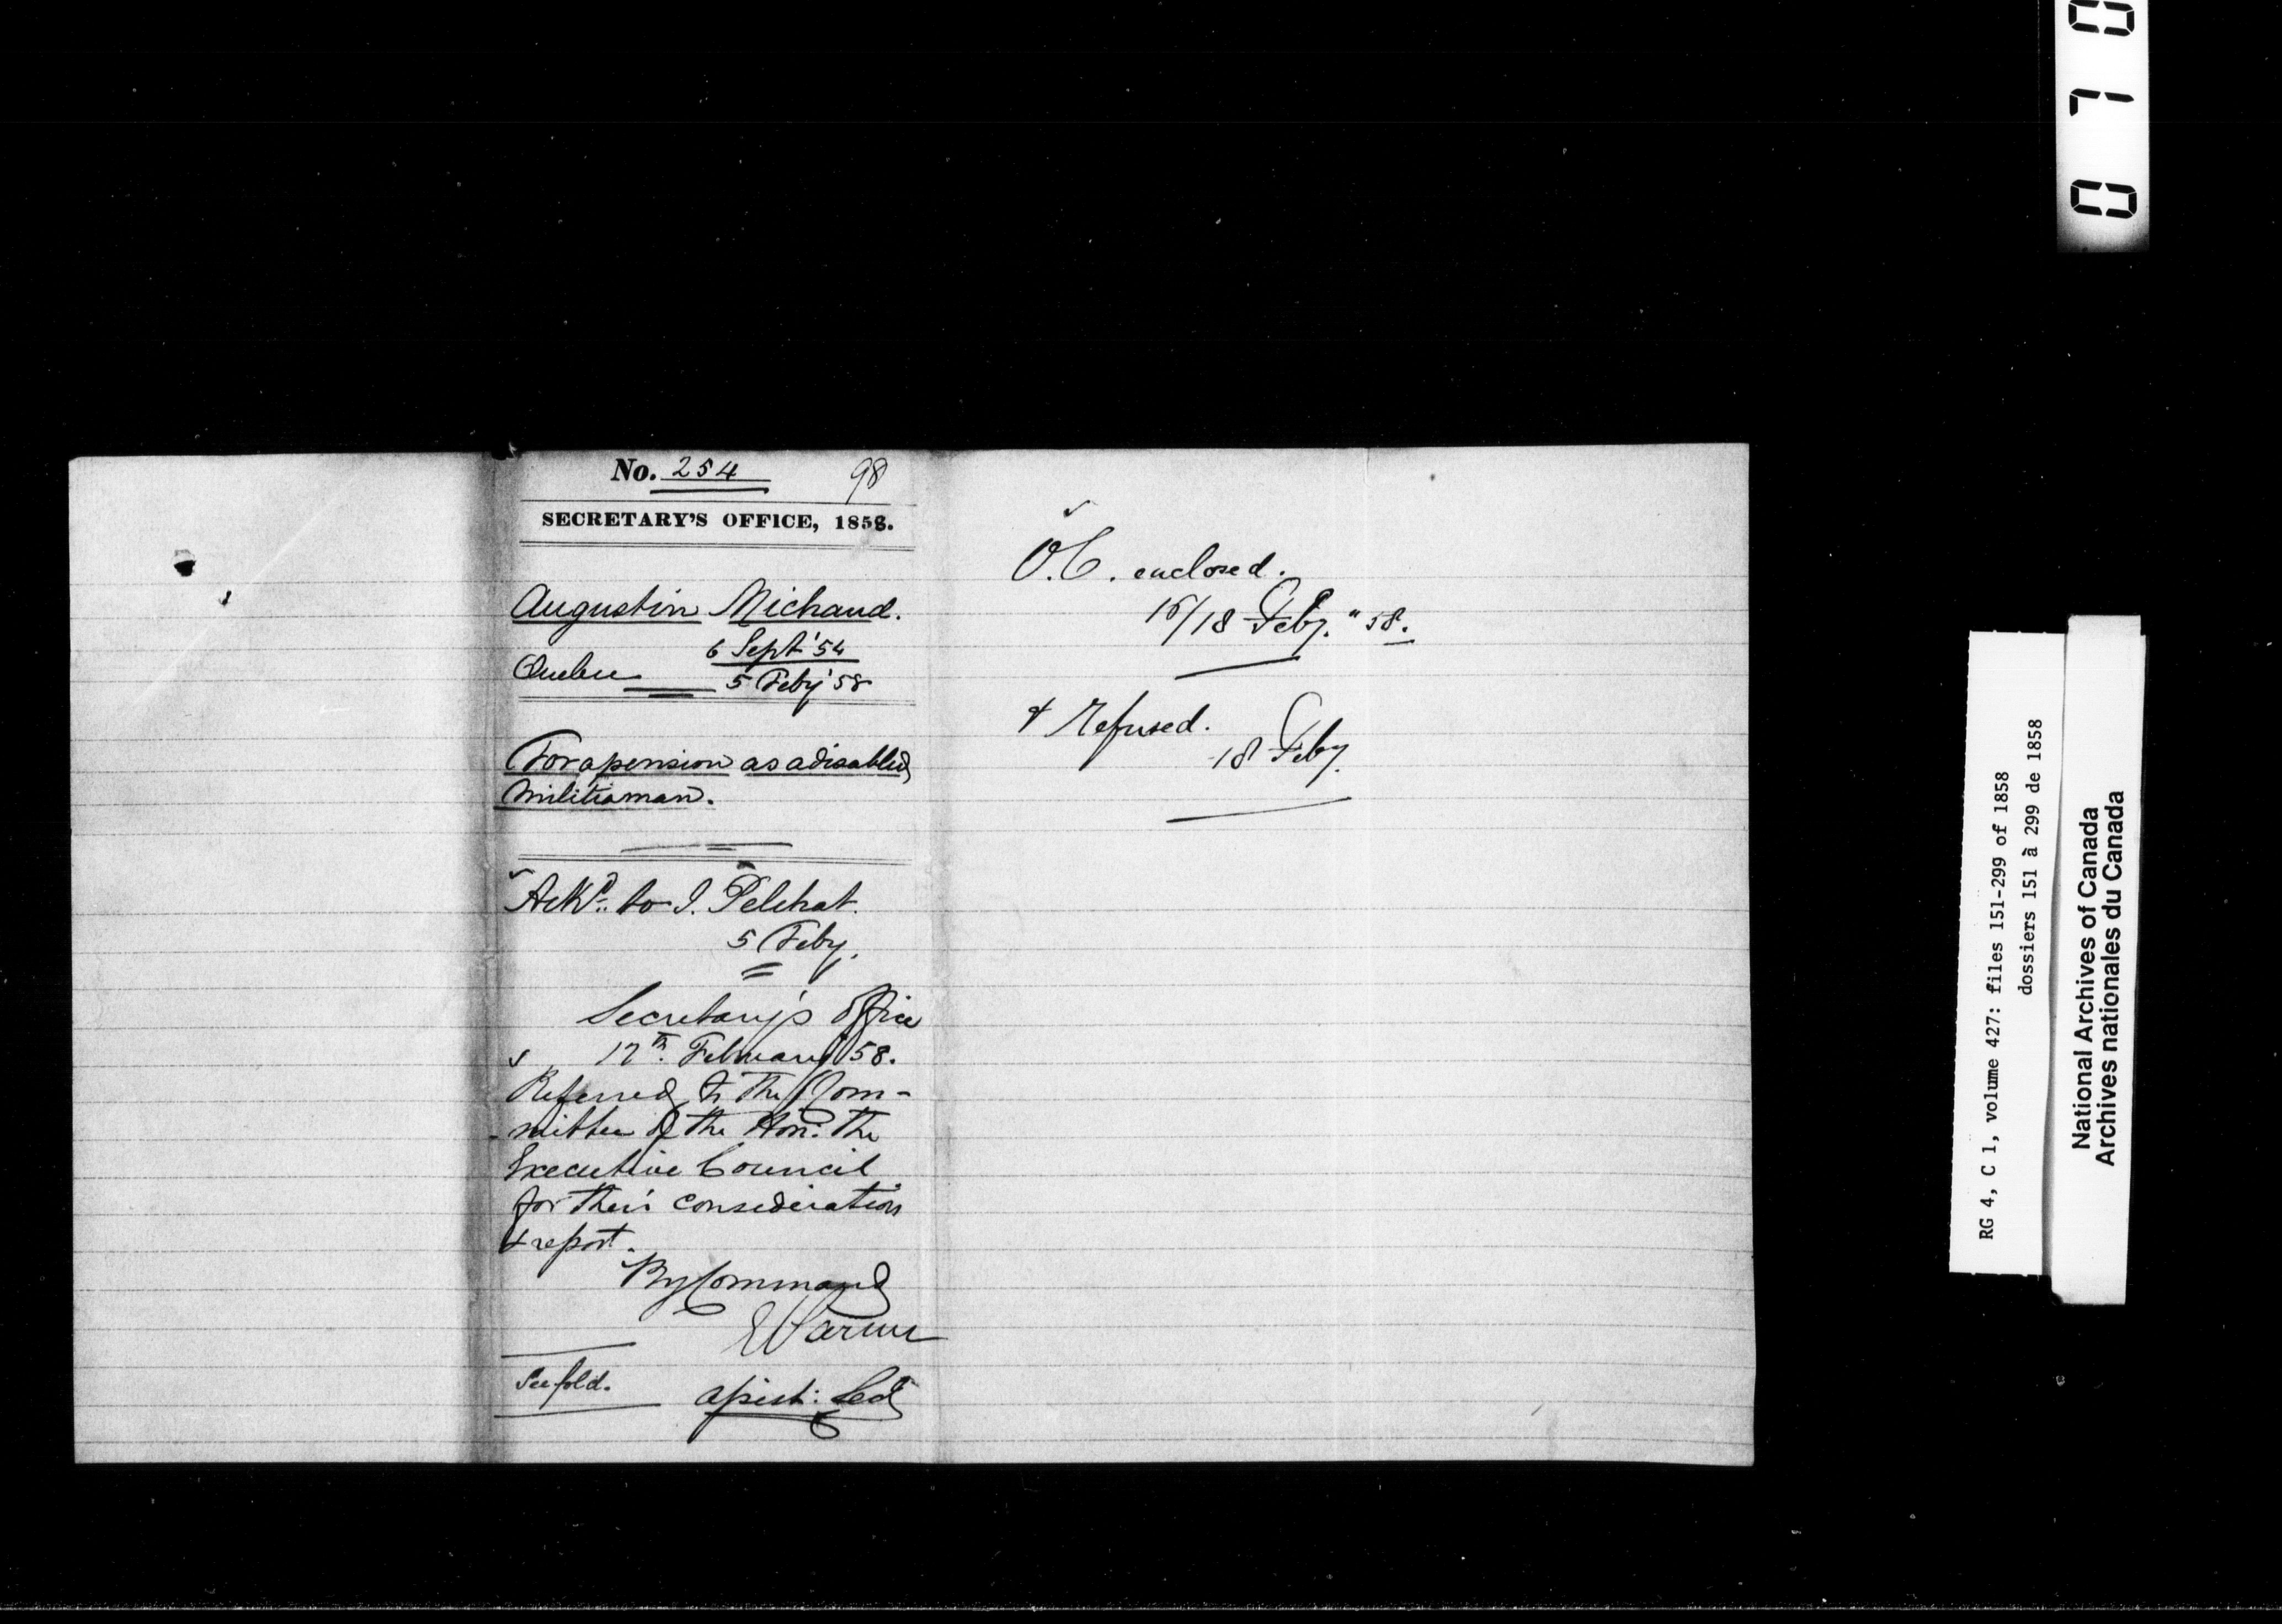 No. 254 98
SECRETARY'S OFFICE, 1858.
Augustin Michaud.
6 Sept '54
Quebec 5 Feby '58
For a pension as a disabled
Militiaman.
Ackd. to I. Pelchat.
5 Feby.
Secretary's Office
12th. February 58.
Referred to the Com-
mittee of the Hon: the
Executive Council
for their consideration
& report.
By Command
E Parent
See fold.
Assist: Secy
O.C. enclosed.
16/18 Feby. "58.
& Refused.
18 Feby.
0 7 0
RG 4, C 1, volume 427: files 151-299 of 1858
dossiers 151 à 299 de 1858
National Archives of Canada
Archives nationales du Canada